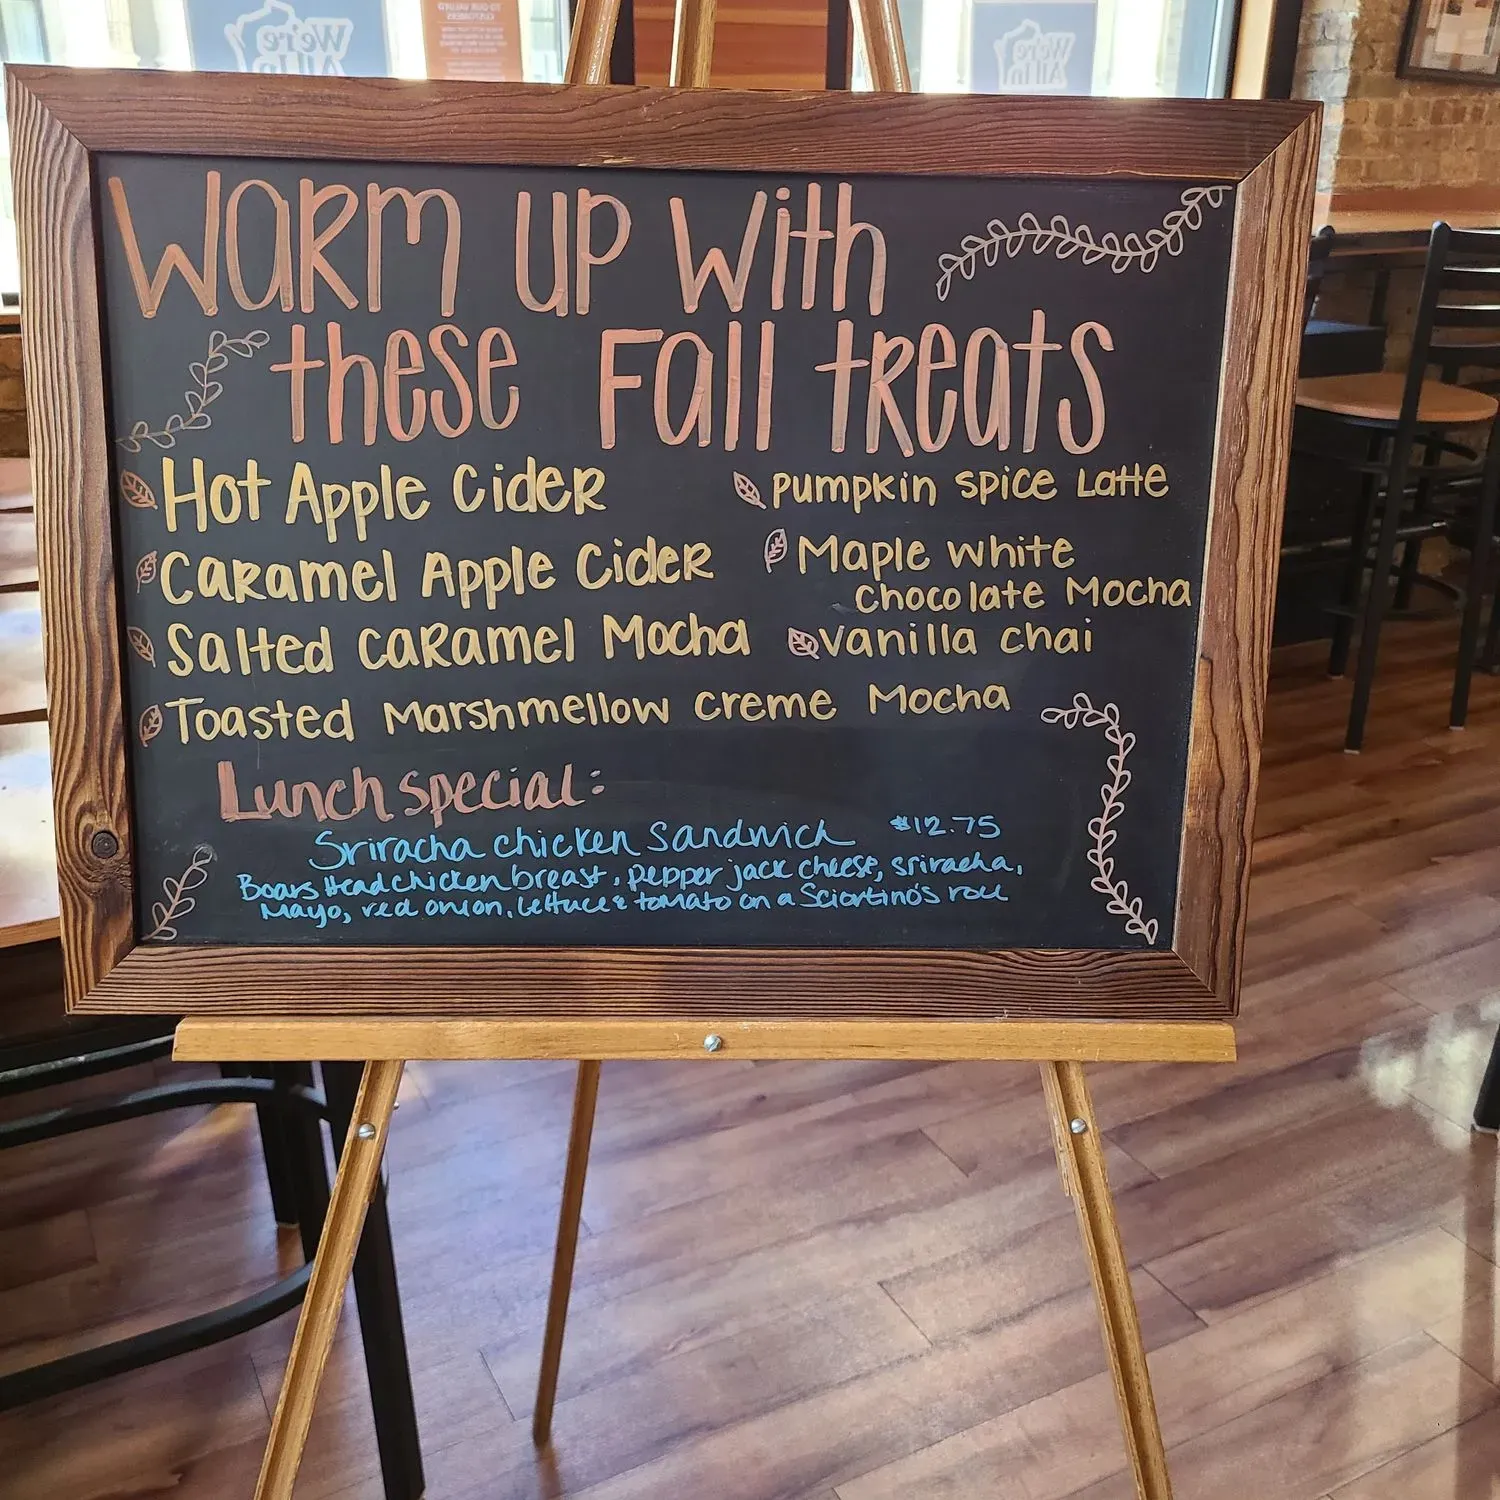 We're
All In
TO OUR VALUED
CUSTOMERS
We're
All In
Warm up with
these Fall treats
Hot Apple Cider
Caramel Apple Cider
Salted Caramel Mocha
Toasted Marshmellow Creme Mocha
Pumpkin Spice Latte
Maple White
Chocolate Mocha
Vanilla Chai
Lunch special:
Sriracha chicken sandwich $12.75
Boars Head chicken breast, pepper jack cheese, sriracha,
Mayo, red onion, lettuce & tomato on a Sciortino's roll